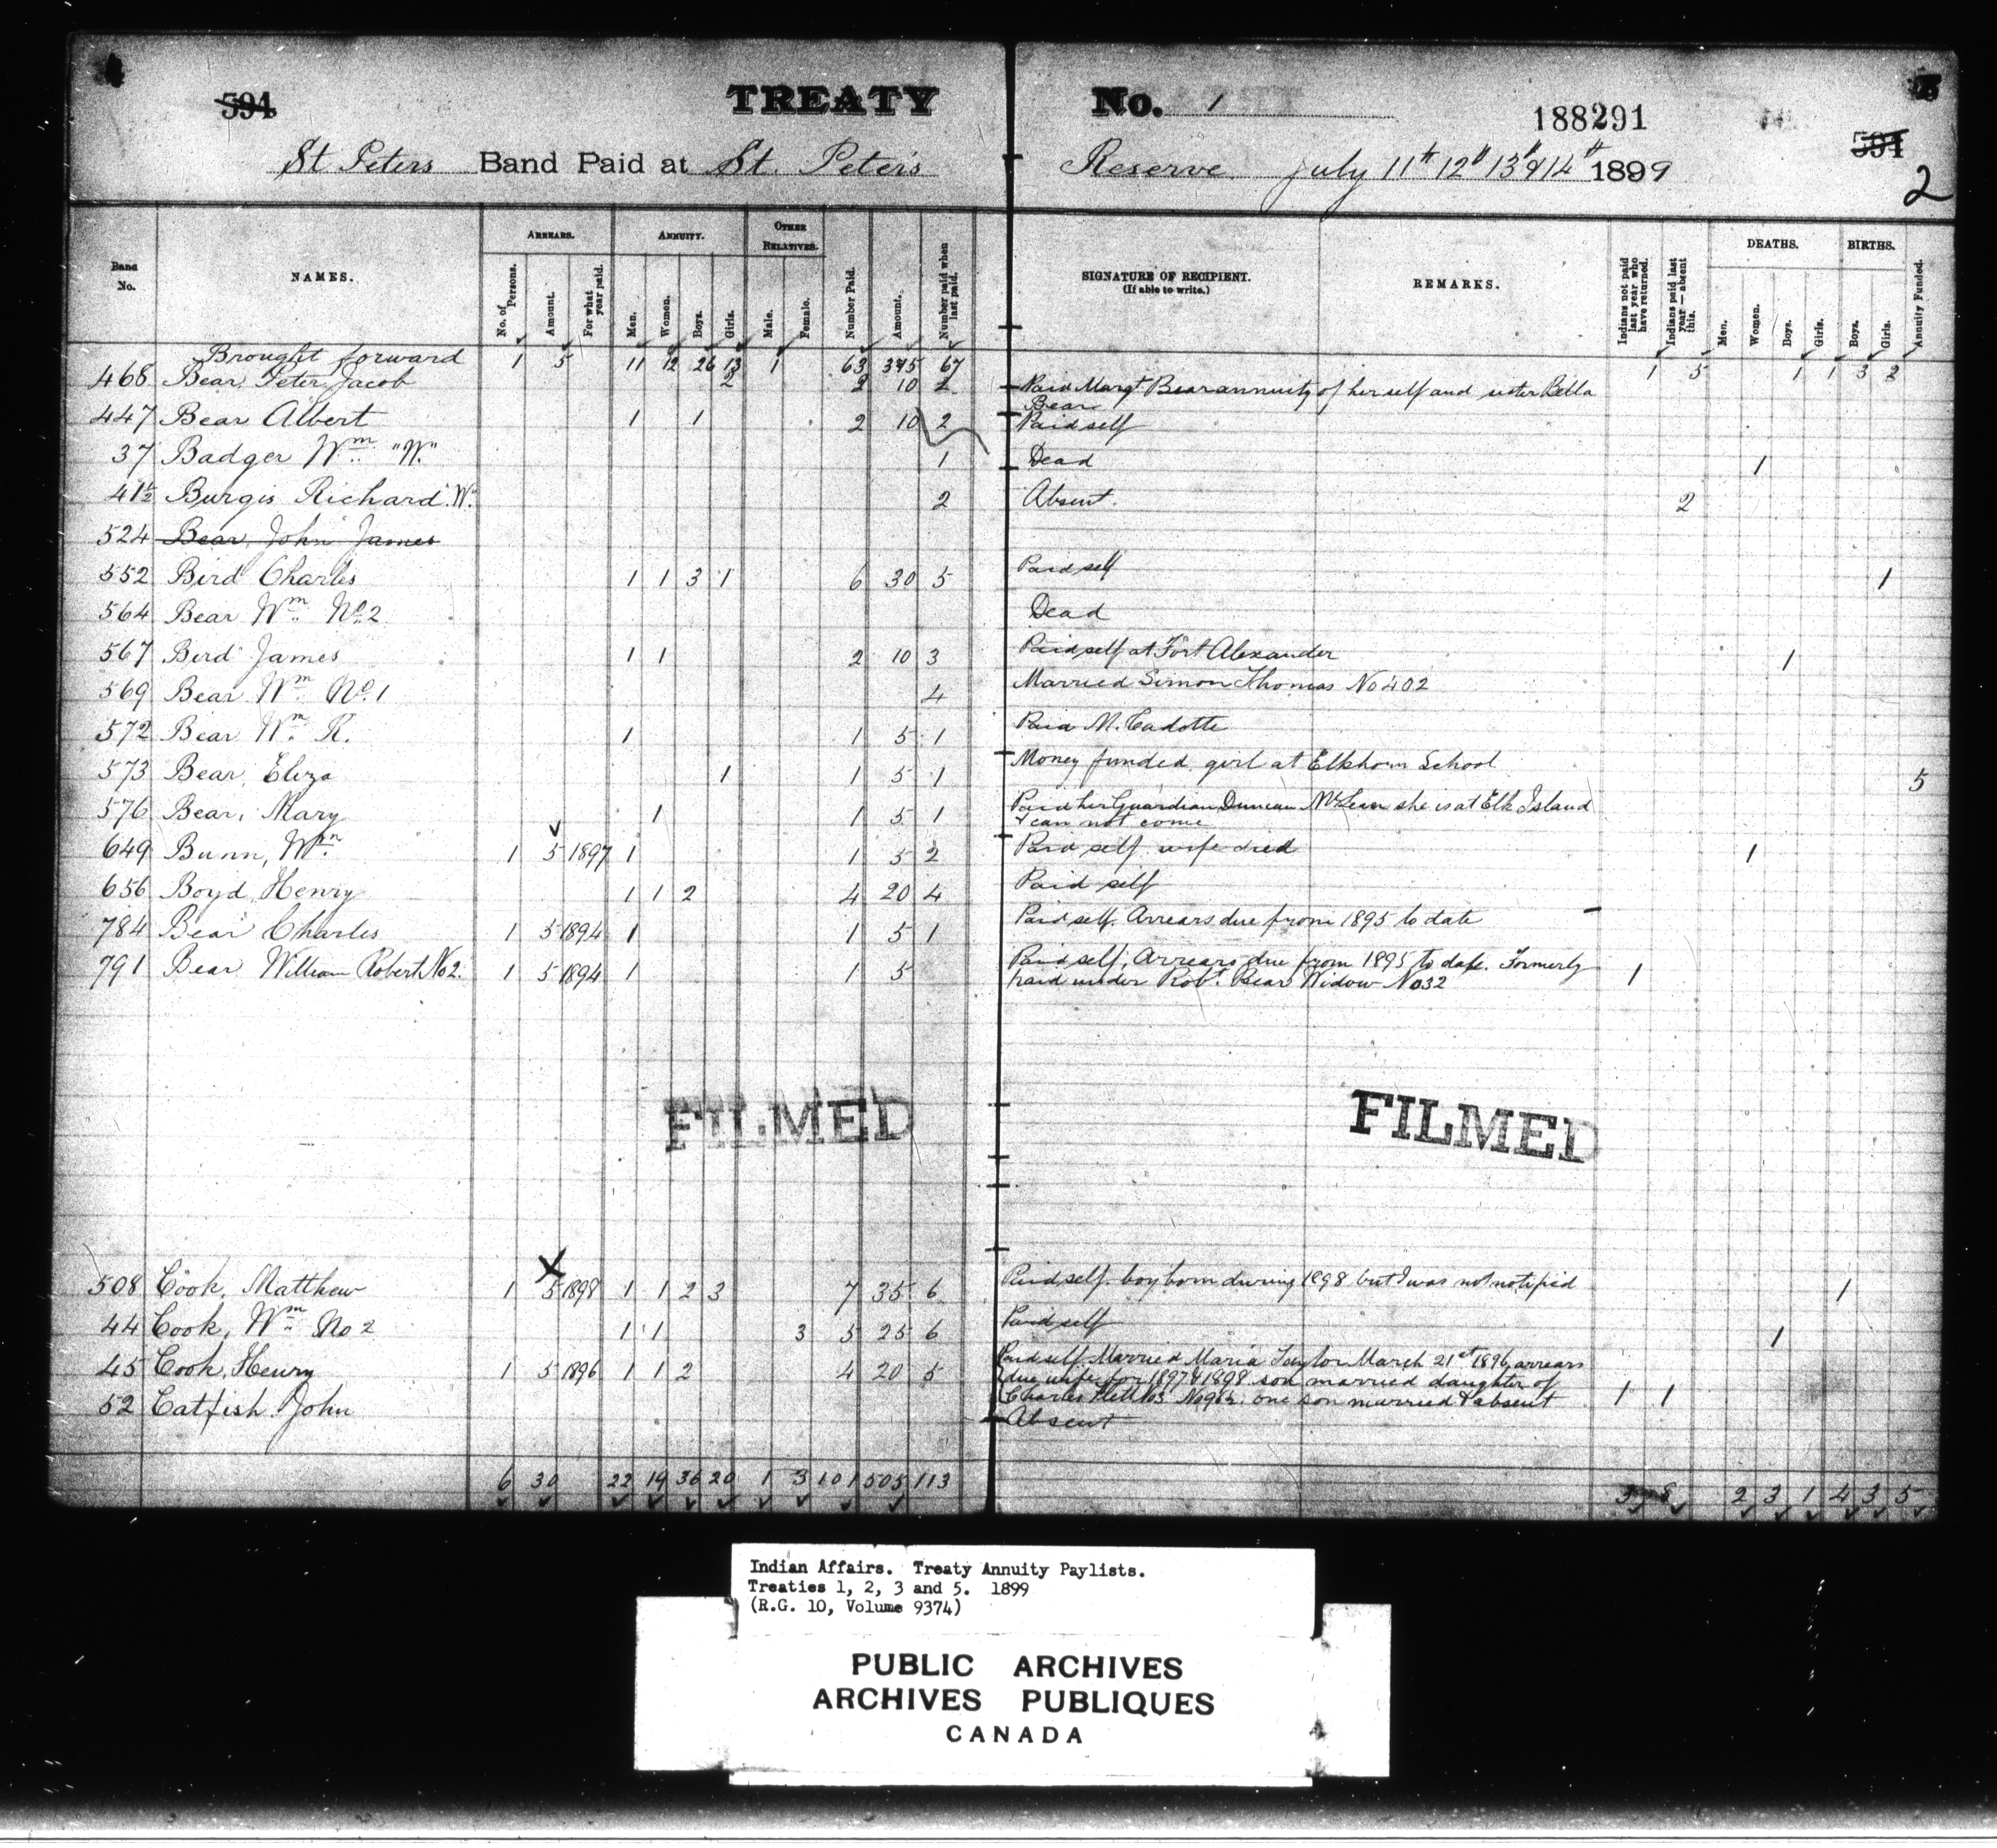 594 TREATY No. 1 188291 594
St Peters Band Paid at St. Peter's Reserve July 11th 12th 13th & 14th 1899
2
Band No. NAMES. ARREARS. ANNUITY. OTHER RELATIVES. Number Paid. Amount. Number paid when last paid. SIGNATURE OF RECIPIENT. (If able to write.) REMARKS. Indians not paid last year who have returned. Indians paid last year — absent this. DEATHS. BIRTHS. Annuity Funded.
No. of Persons. Amount. For what year paid. Men. Women. Boys. Girls. Male. Female. Men. Women. Boys. Girls. Boys. Girls.
Brought forward 1 5 11 12 26 13 1 63 315 67 1 5 1 1 3 2
468 Bear, Peter Jacob 2 2 10 2 Paid Margt. Bear annuity of herself and sister Bella Bear
447 Bear Albert 1 1 2 10 2 Paid self
37 Badger Wm. "W." 1 Dead 1
41½ Burgis Richard "W." 2 Absent. 2
524 Bear, John James
552 Bird Charles 1 1 3 1 6 30 5 Paid self 1
564 Bear Wm. No. 2 Dead
567 Bird James 1 1 2 10 3 Paid self at Fort Alexander 1
569 Bear Wm. No. 1 4 Married Simon Thomas No 402
572 Bear Wm. R. 1 1 5 1 Paid M. Cadotte
573 Bear, Eliza 1 1 5 1 Money funded, girl at Elkhorn School 5
576 Bear, Mary 1 1 5 1 Paid her Guardian Duncan McLean she is at Elk Island
& can not come
649 Bunn, Wm. 1 5 1897 1 1 5 2 Paid self wife died 1
656 Boyd, Henry 1 1 2 4 20 4 Paid self
784 Bear Charles 1 5 1894 1 1 5 1 Paid self. Arrears due from 1895 to date
791 Bear William Robert No 2. 1 5 1894 1 1 5 Paid self, Arrears due from 1895 to date. Formerly 1
paid under Robt. Bear Widow No 32
FILMED FILMED
508 Cook, Matthew 1 5 1898 1 1 2 3 7 35 6 Paid self. boy born during 1898 but I was not notified 1
44 Cook, Wm. No 2 1 1 3 5 25 6 Paid self 1
45 Cook, Henry 1 5 1896 1 1 2 4 20 5 Paid self Married Maria Taylor March 21st 1896, arrears
due wife for 1897 & 1898 son married daughter of
Charles one son married & absent 1 1
52 Catfish John Absent
6 30 22 19 36 20 1 3 101 505 113 3 8 2 3 1 4 3 5
Indian Affairs. Treaty Annuity Paylists.
Treaties 1, 2, 3 and 5. 1899
(R.G. 10, Volume 9374)
PUBLIC ARCHIVES
ARCHIVES PUBLIQUES
CANADA